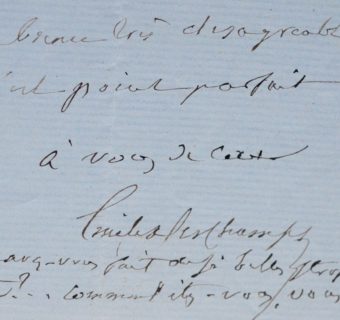 très désagreable
n'est point parfait
à vous de cœur
Emile Deschamps
avez-vous fait de si belles strop
comment êtes-vous, vous